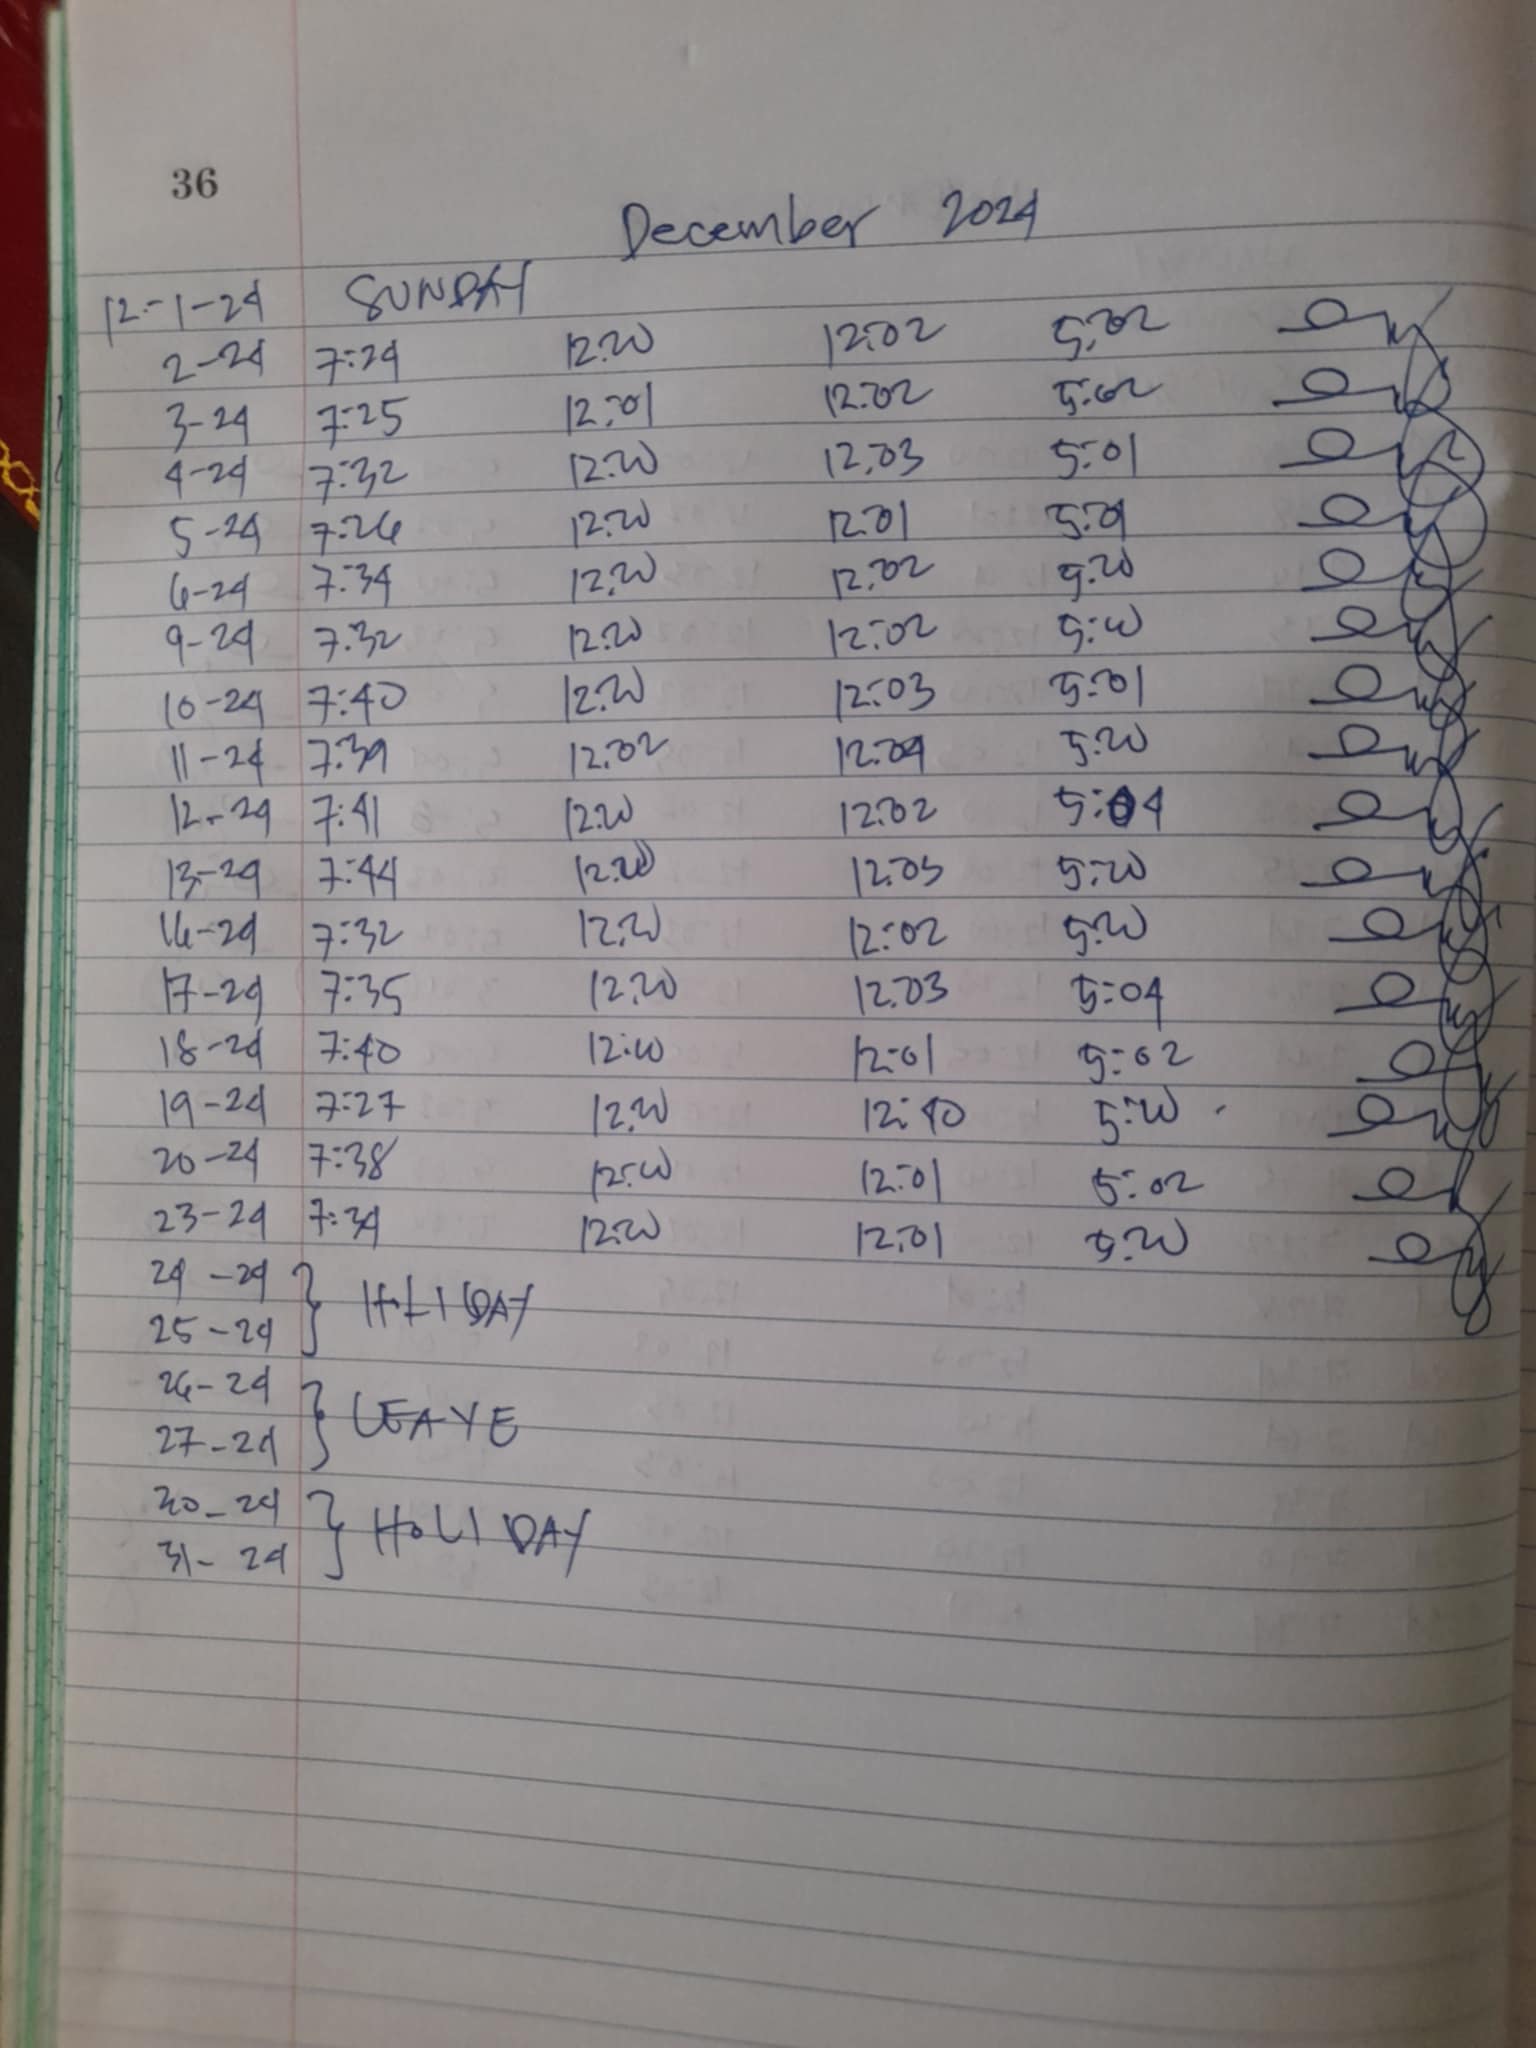 36
December 2024
12-1-24 SUNDAY
2-24 7:24 12:00 12:02 5:02
3-24 7:25 12:01 12:02 5:02
4-24 7:32 12:00 12:03 5:01
5-24 7:26 12:00 12:01 5:04
6-24 7:34 12:00 12:02 5:00
9-24 7:32 12:00 12:02 5:00
10-24 7:40 12:00 12:03 5:01
11-24 7:39 12:02 12:04 5:00
12-24 7:41 12:00 12:02 5:04
13-24 7:44 12:00 12:05 5:00
16-24 7:32 12:00 12:02 5:00
17-24 7:35 12:00 12:03 5:04
18-24 7:40 12:00 12:01 5:02
19-24 7:27 12:00 12:40 5:00
20-24 7:38 12:00 12:01 5:02
23-24 7:34 12:00 12:01 5:00
24-24
HOLIDAY
25-24
26-24
LEAVE
27-24
30-24
HOLIDAY
31-24